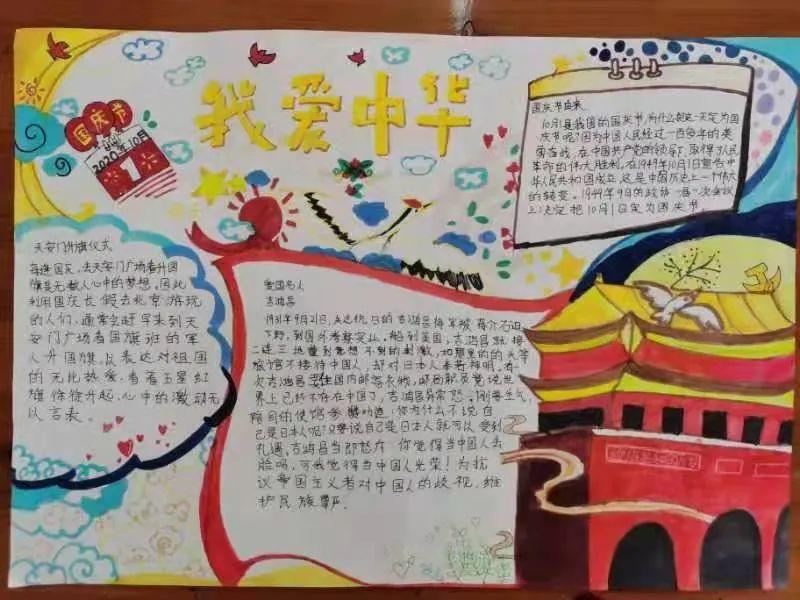 我爱中华
国庆节
2020年10月
1
国庆节由来
10月1是我国的国庆节,为什么
定为国
庆节呢?因为中国人民经过一百多年的英
勇奋战,在中国共产党的领导下,取得了人民
革命的伟大胜利.在1949年10月1日宣告中
华人民共和国成立,这是中国历史上一个伟大
的转变。1949年9月的政协一届一次会议
上决定把10月1日定为国庆节.
天安门升旗仪式
每逢国庆,去天安门广场看升国
旗是无数人心中的梦想。因此
利用国庆长假去北京游玩
的人们,通常会赶早来到天
安门广场看国旗班的军
人升国旗,以表达对祖国
的无比热爱,看着五星红
旗徐徐升起,心中的激动无
以言表。
爱国名人
吉鸿昌
1931年9月21日,矢志抗日的吉鸿昌将军被蒋介石逼
下野,到国外考察实业。船到美国,吉鸿昌就接
二连三地遭到意想不到的刺激,如那里的的头等
旅馆不接待中国人,却对日本人奉若神明。有一
次吉鸿昌
国内邮寄衣物,邮局职员竟说世
界上已经不存在中国了,吉鸿昌异常怒,刚要
陪同的使馆参
劝道,你为什么不说自
己是日本人呢?只要说自己是日本人就可以受到
礼遇,吉鸿昌当即怒斥 你觉得当中国人丢
脸吗,可我觉得当中国人光荣!为抗
议帝国主义者对中国人的歧视,维
护民族尊严。